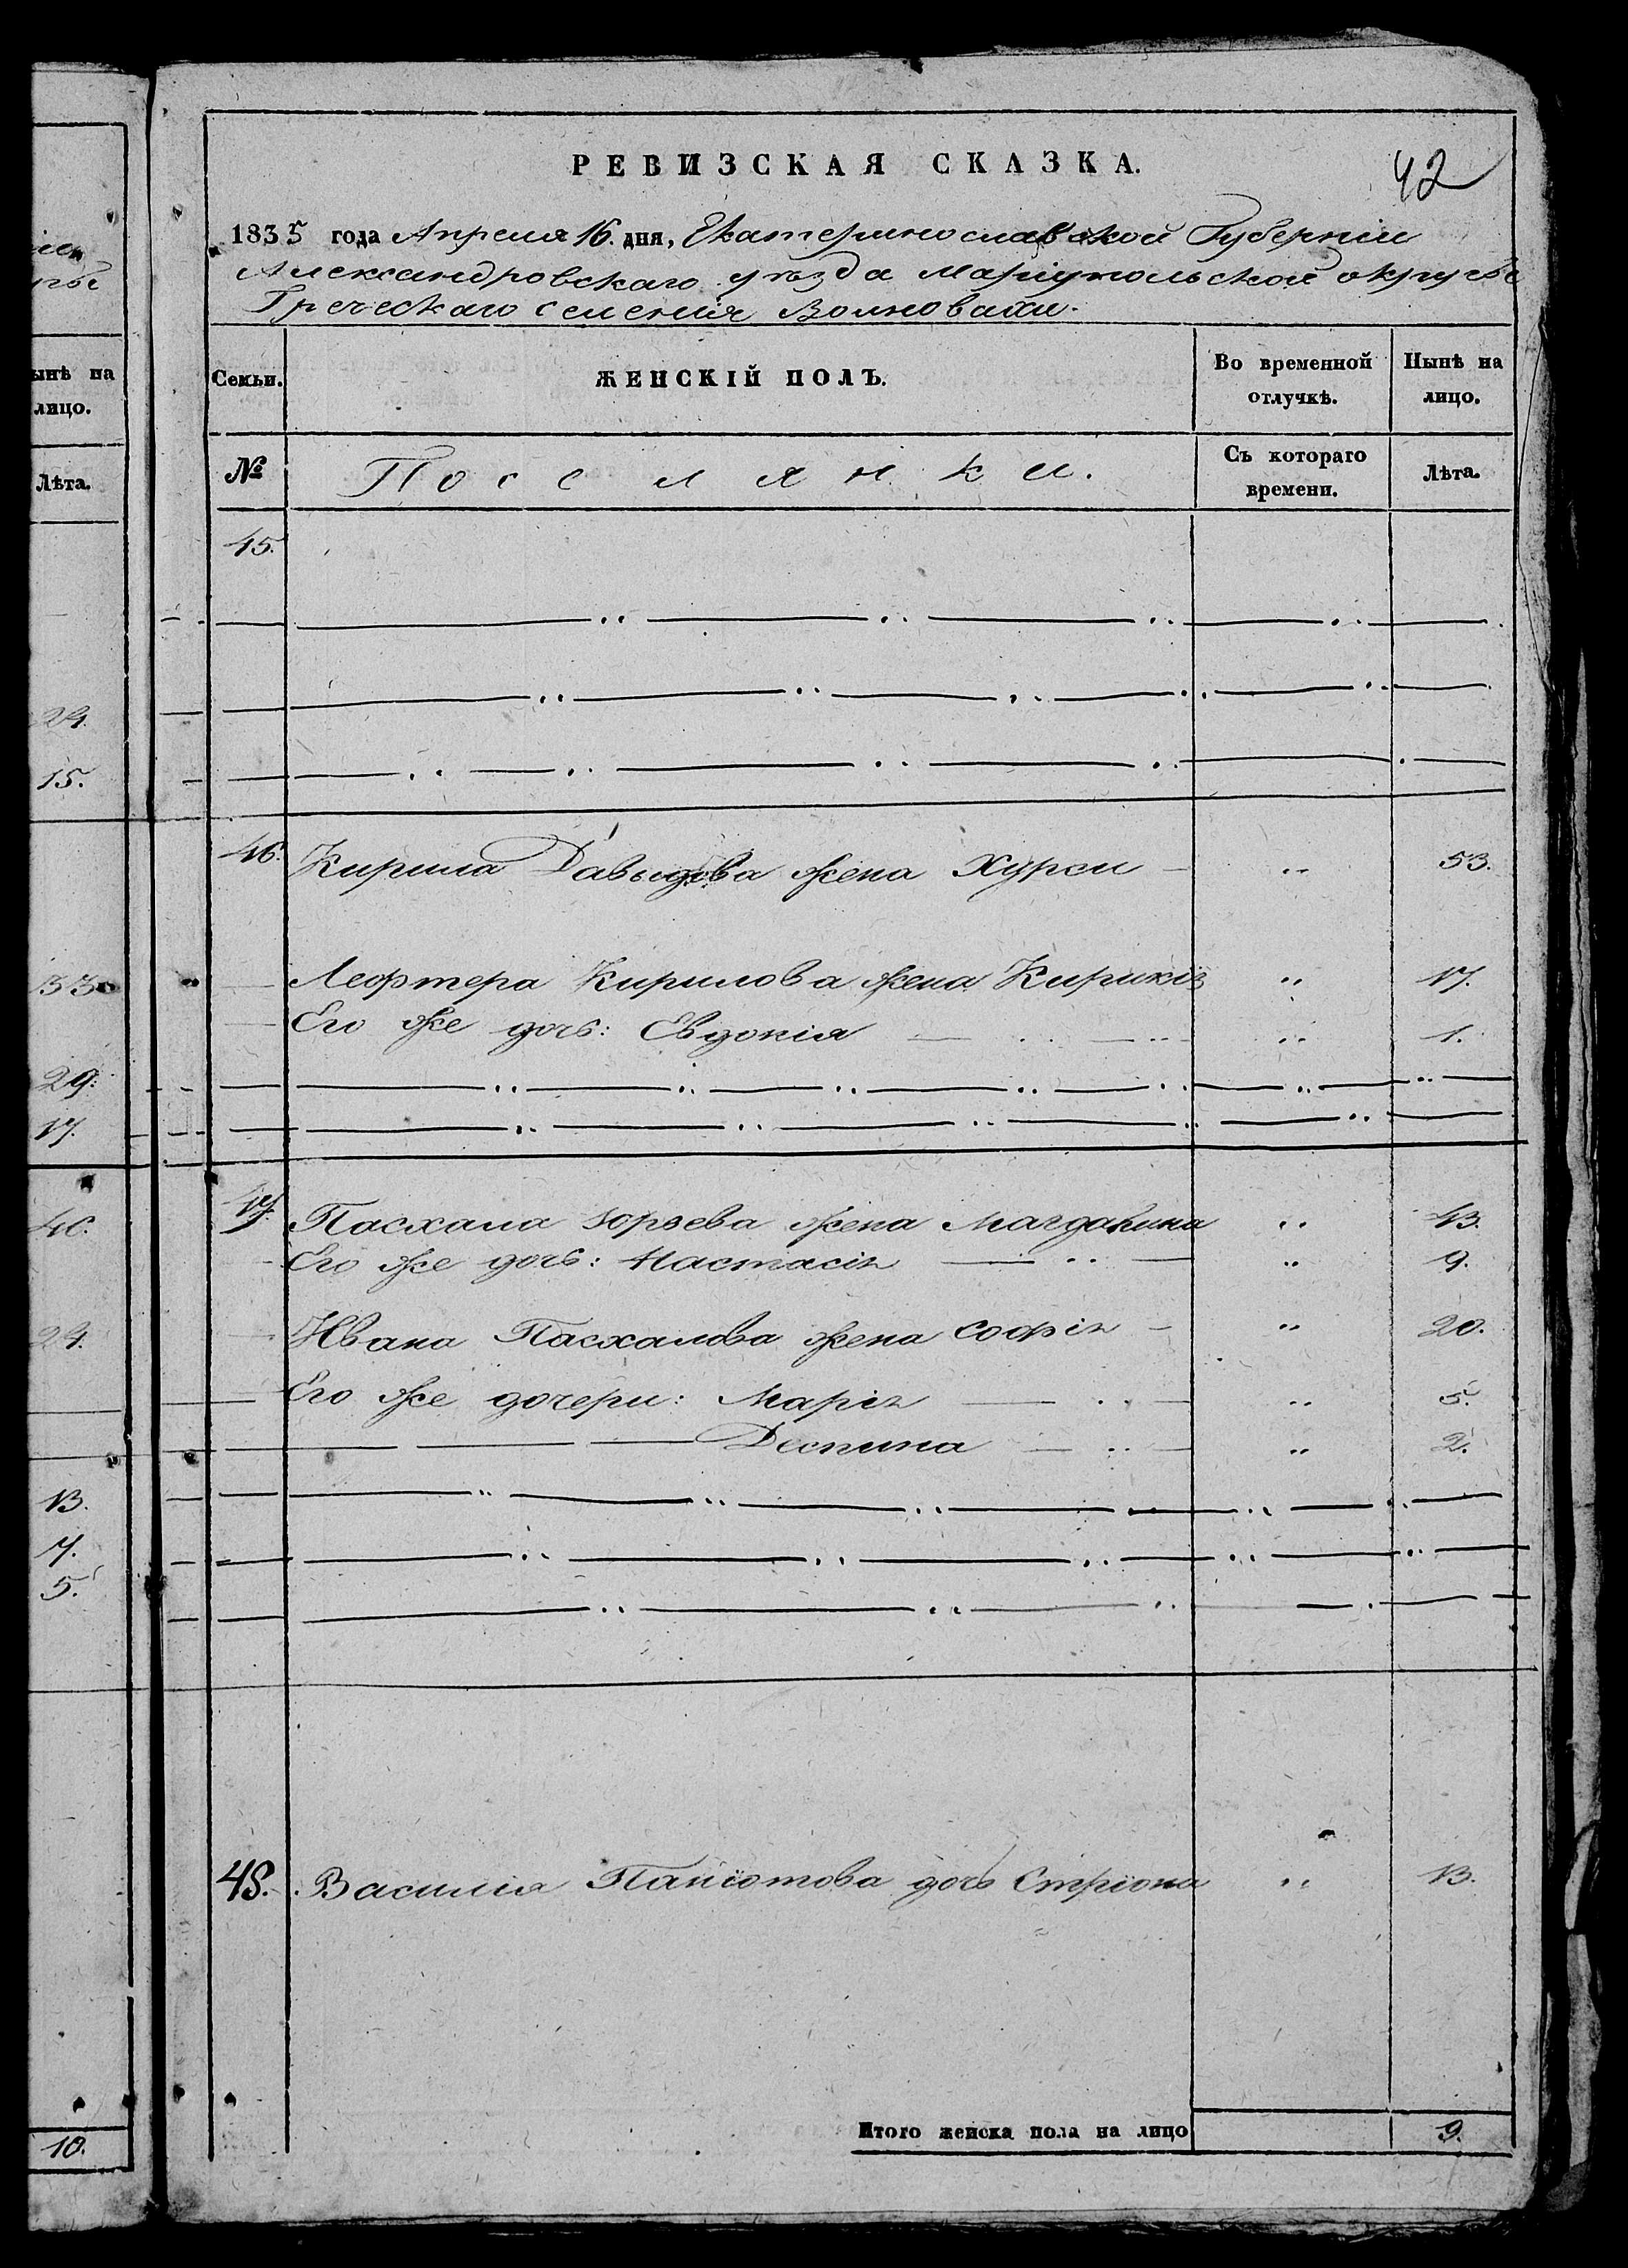 РЕВИЗСКАЯ СКАЗКА.
42
1835 года Апреля 16. дня, Екатеринославской Губерніи
Александровскаго уѣзда Маріупольской округѣ
Греческаго селенія Волновахи.
ынѣ на
лицо.
Семьи.
ЖЕНСКІЙ ПОЛЪ.
Во временной
отлучкѣ.
Нынѣ на
лицо.
Лѣта.
№
Поселянки.
Съ котораго
времени.
Лѣта.
45.
24.
15.
46. Кирила Давыдова жена Хурси 53.
33
Леофтера Кирилова жена Кирикія 17.
Его же дочь: Евдокія 1.
29.
17.
47. Пасхала Зорзева жена Магдалина 43.
40.
Его же дочь: Настасія 9.
24.
Ивана Пасхалова жена Софія 20.
Его же дочери: Марія 5.
Деспина 2.
13.
7.
5.
48. Василія Панiотова дочь Стріона 13.
Итого женска пола на лицо 9.
10.